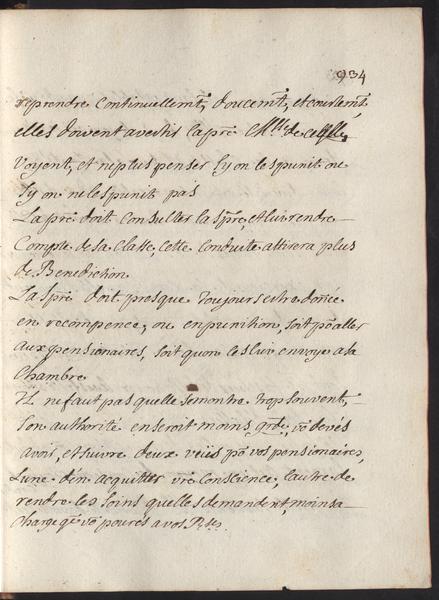 934
reprendre continuellemt, doucemt, et courtemt,
elles doivent avertir la pre. Mlle. de ce qlles
voyent, et ne plus penser sy on les punit ou
sy on ne les punit pas
La pre doit consulter la Spre, et luy rendre
compte de sa classe, cette conduite attirera plus
de Benediction
La Spre doit presque toujours estre donée
en recompence, ou en punition, soit pr aller
aux pensionaires, soit quon les luy envoye a sa
chambre
Il ne faut pas quelle se montre trop souvent,
son authorité en seroit moins grde, vs devés
avoir, et suivre deux veües pr vos pensionaires,
Lune den acquitter vre conscience, lautre de
rendre les soins quelles demandent, moins a
charge qe vs pourés a vos